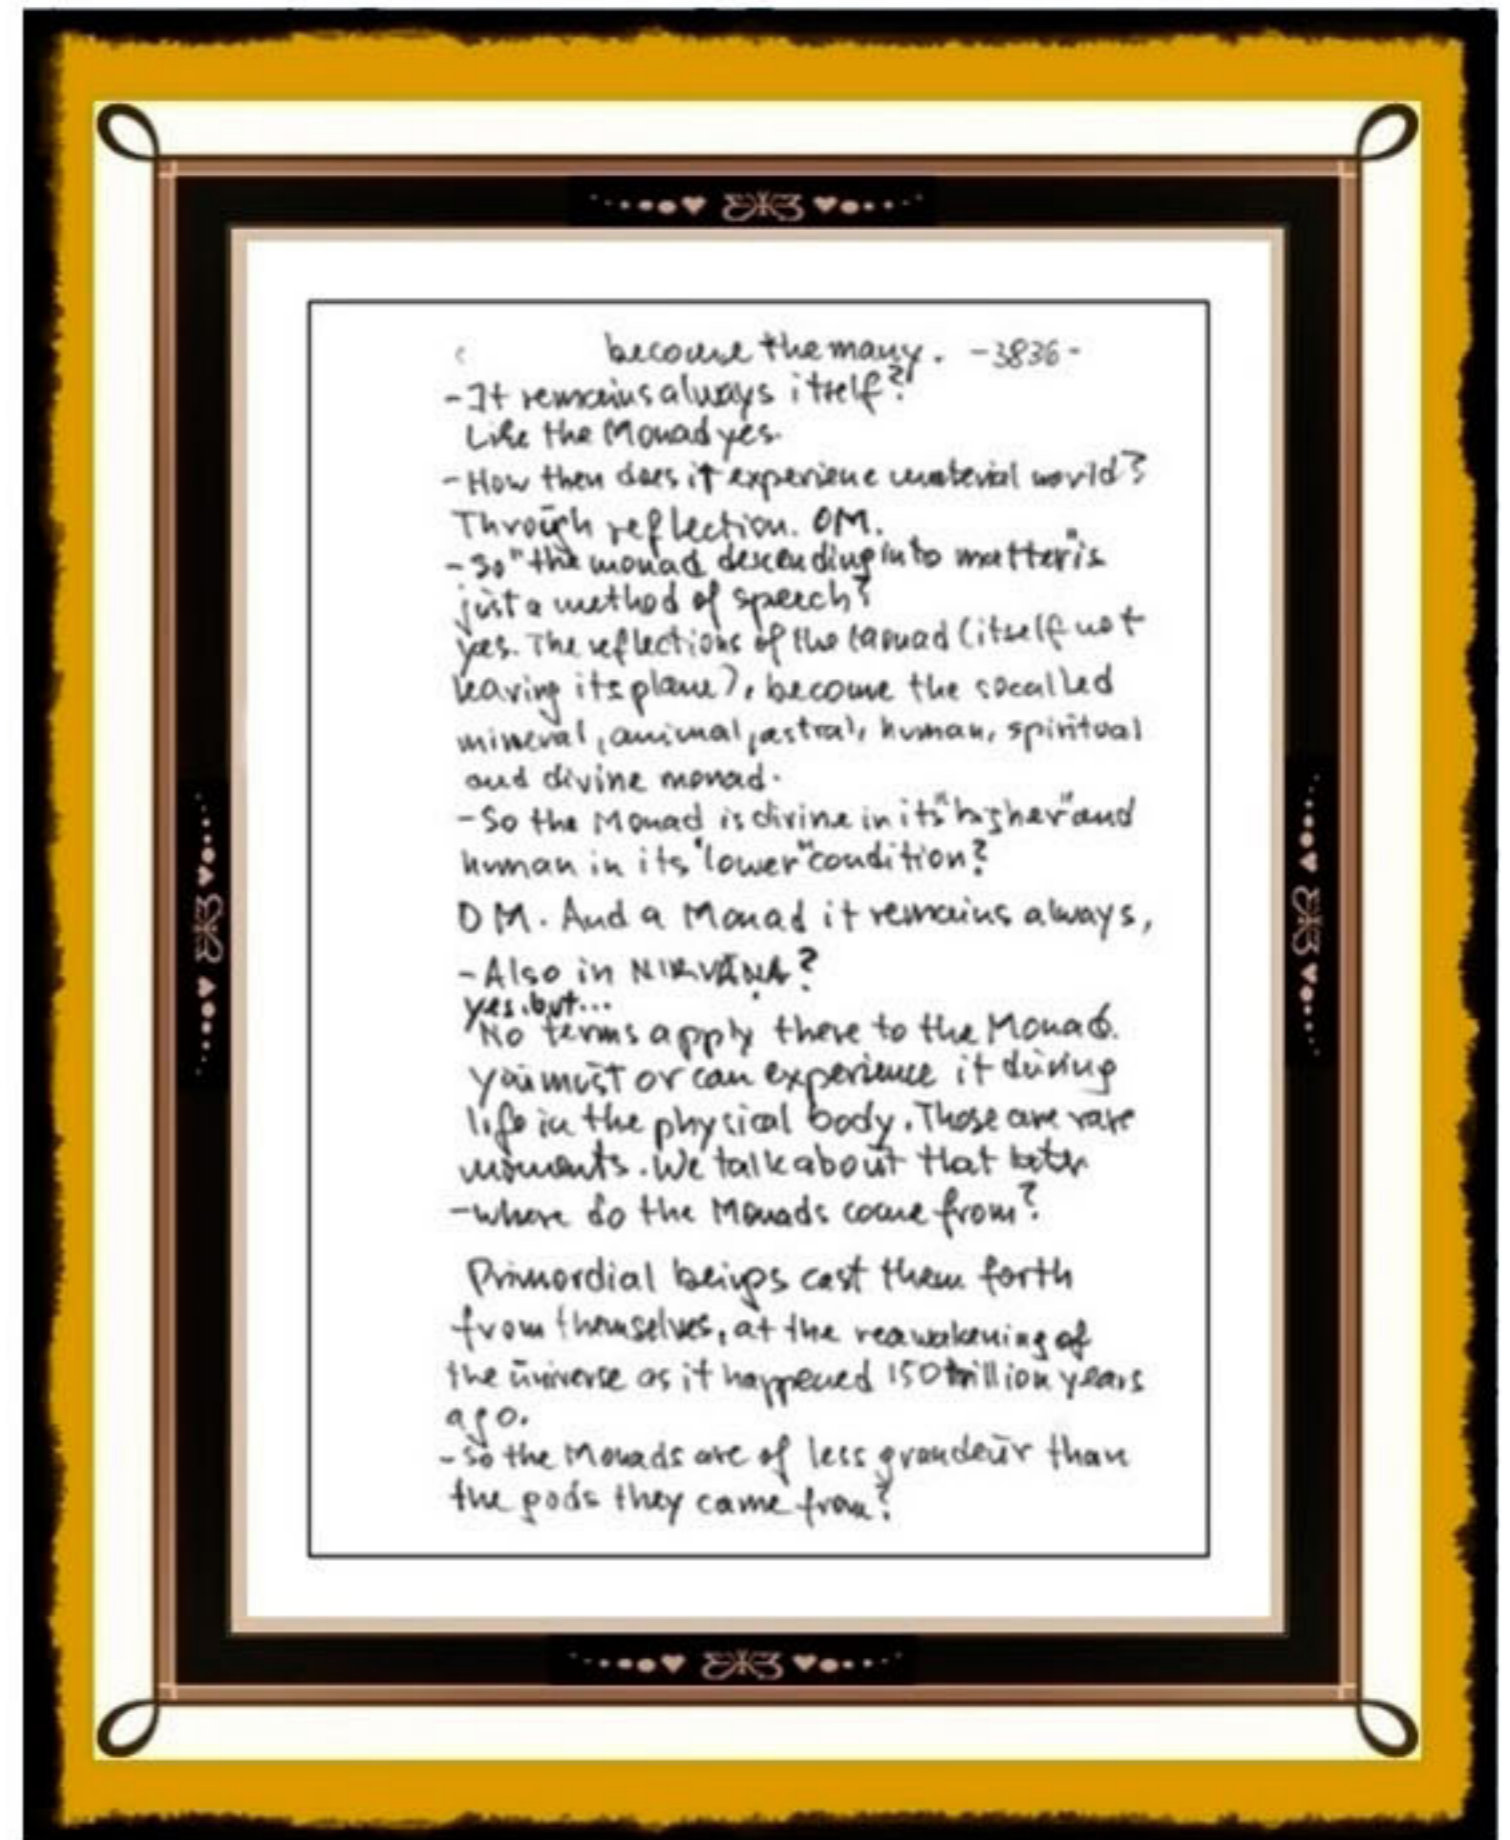 become the many. -3836-
-It remains always itself?
Like the Monad yes.
-How then does it experience material world?
Through reflection. OM.
-So "the monad descending into matter" is
just a method of speech?
yes. The reflections of the Monad (itself not
leaving its plane), become the socalled
mineral, animal, astral, human, spiritual
and divine monad.
-So the Monad is divine in its "higher" and
human in its "lower" condition?
OM. And a Monad it remains always,
-Also in NIRVĀNA?
yes, but...
No terms apply there to the Monad.
You must or can experience it during
life in the physical body. Those are rare
moments. We talk about that later
-Where do the Monads come from?
Primordial beings cast them forth
from themselves, at the reawakening of
the universe as it happened 150 trillion years
ago.
-So the Monads are of less grandeur than
the gods they came from?